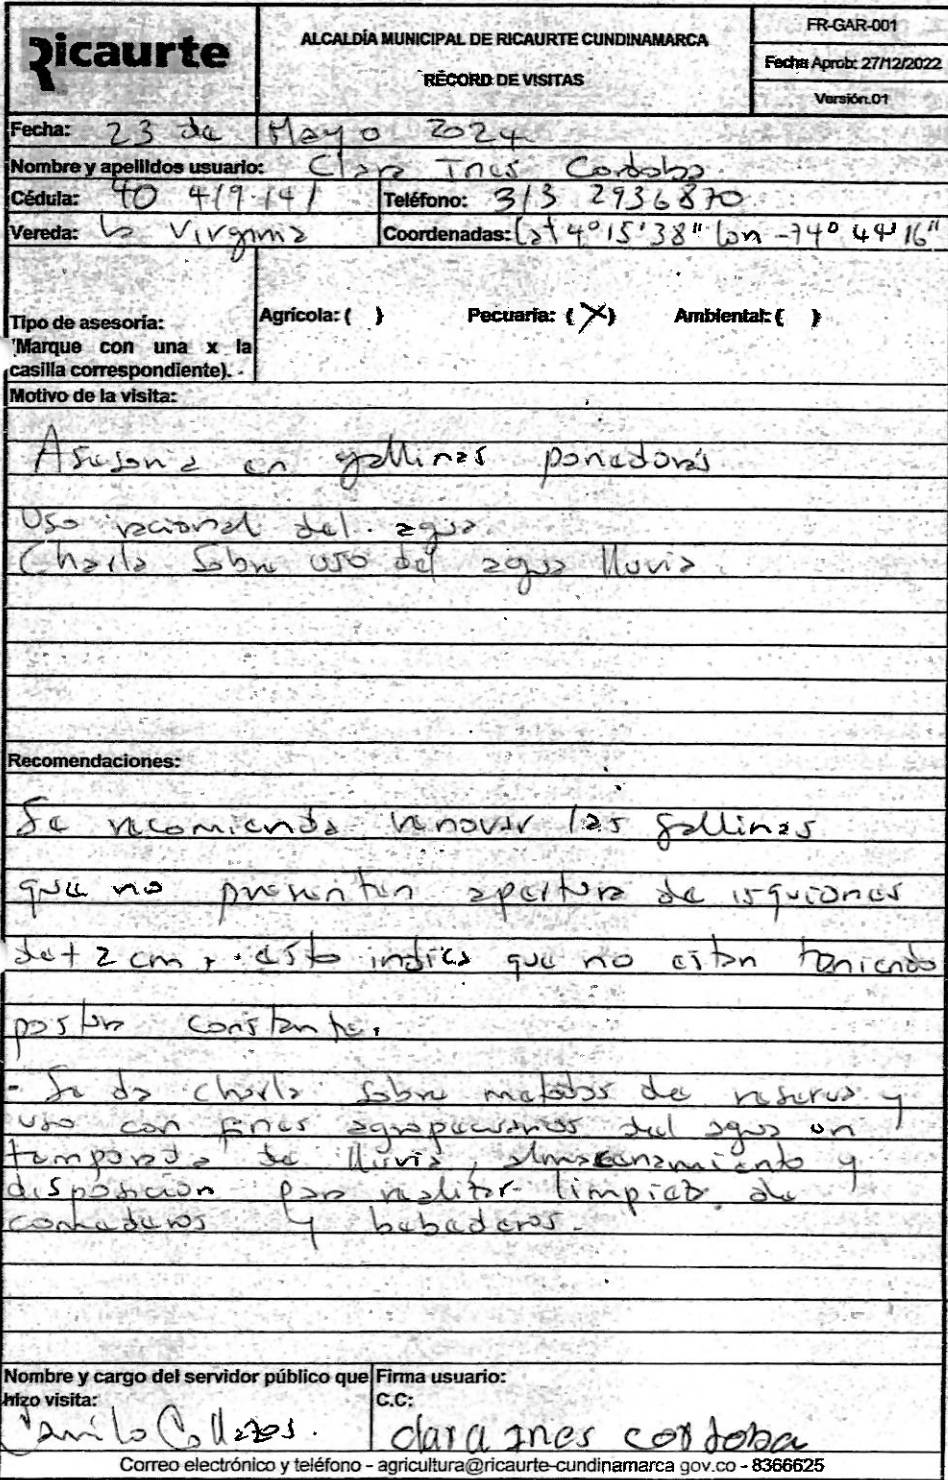 Ricaurte
ALCALDÍA MUNICIPAL DE RICAURTE CUNDINAMARCA
RÉCORD DE VISITAS
FR-GAR-001
Fecha Aprob: 27/12/2022
Versión.01
Fecha: 23 de Mayo 2024
Nombre y apellidos usuario: Clara Ines Cordoba
Cédula: 40 419 141 Teléfono: 313 2936870
Vereda: La Virginia Coordenadas: Lat 4°15'38" lon -74° 44' 16"
Tipo de asesoría:
(Marque con una x la
casilla correspondiente).
Agrícola: ( ) Pecuaria: (X) Ambiental: ( )
Motivo de la visita:
Asesoria en gallinas ponedoras
Uso racional del agua
Charla sobre uso del agua lluvia.
Recomendaciones:
Se recomienda renovar las gallinas
que no presenten apertura de isquiones
de + 2 cm, esto indica que no estan teniendo
postura constante.
- Se da charla sobre metodos de reserva y
uso con fines agropecuarios del agua en
temporada de lluvia, almacenamiento y
disposicion para realizar limpieza de
comederos y bebederos.
Nombre y cargo del servidor público que
hizo visita:
Camilo Collazos.
Firma usuario:
C.C:
clara ines cordoba
Correo electrónico y teléfono - agricultura@ricaurte-cundinamarca gov.co - 8366625